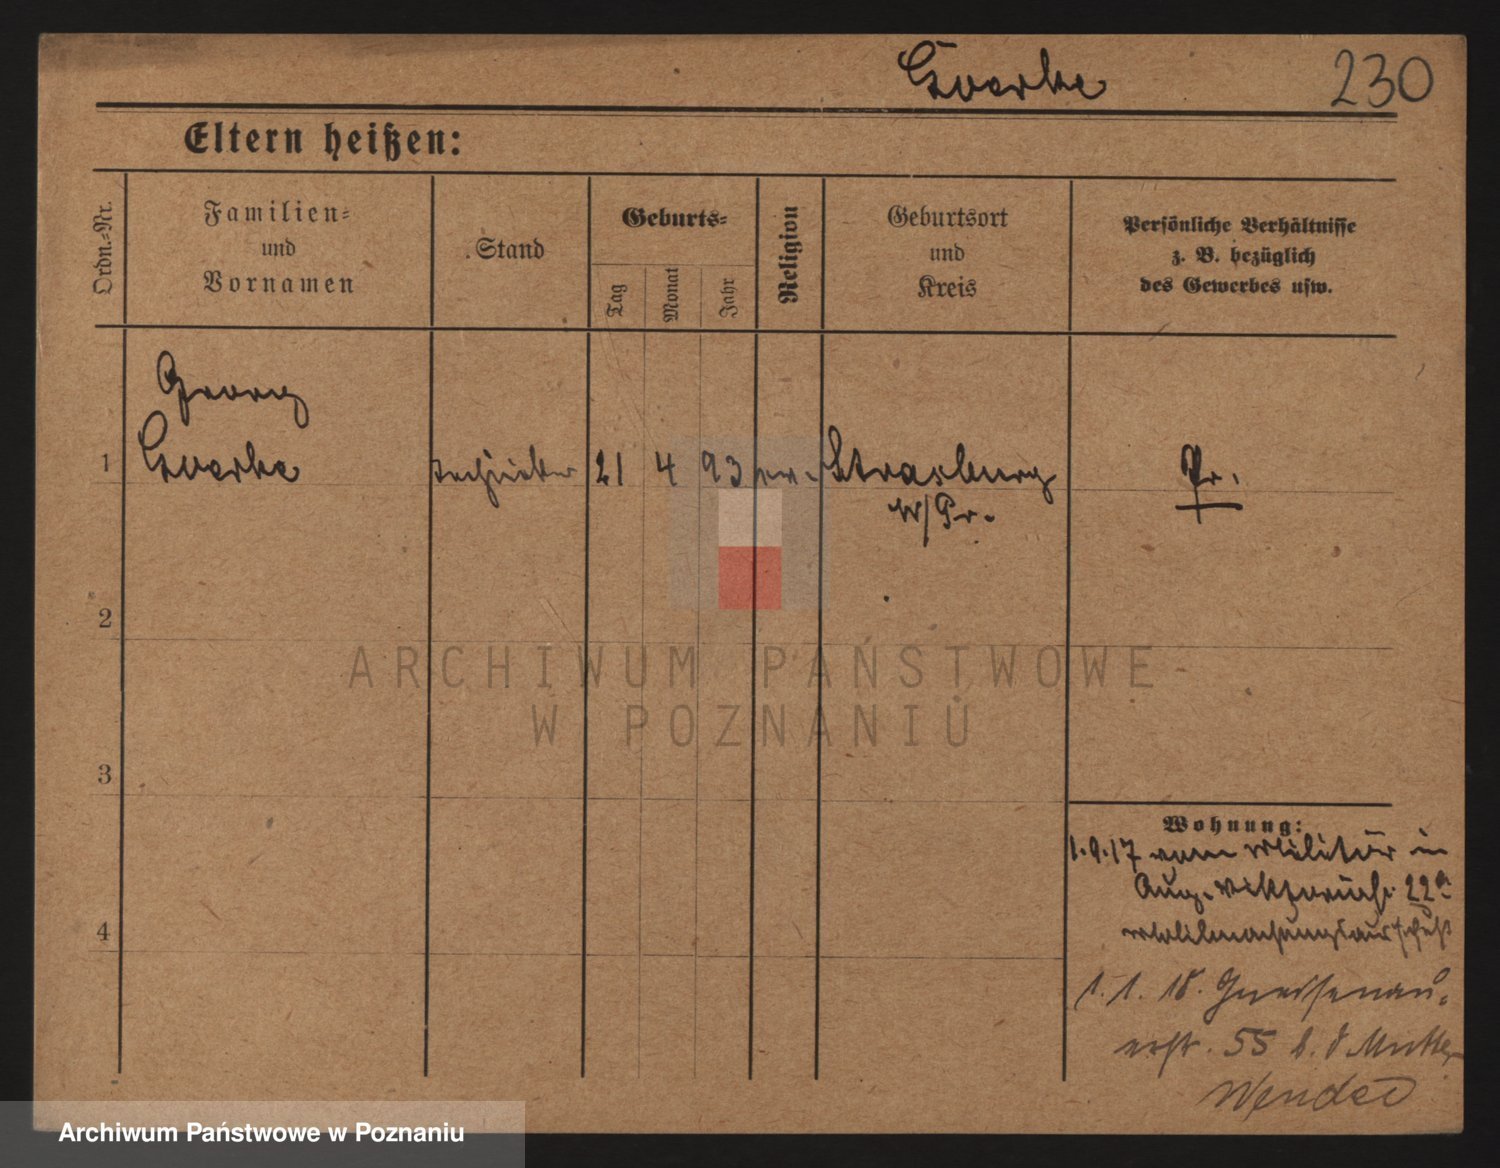 Goerke 230
Eltern heißen:
Ordn.-Nr.
Familien-
und
Vornamen
Stand
Geburts-
Tag
Monat
Jahr
Religion
Geburtsort
und
Kreis
Persönliche Verhältnisse
z. B. bezüglich
des Gewerbes usw.
Georg
1 Goerke 21 4 93 ev. Strasburg Pr.
W/Pr.
2
3
4
Wohnung:
1.9.17 vom Militär in
Aug. Viktoriastr. 22a
1. 1. 18. Gneisenau-
55 b. d Mutter
ARCHIWUM PAŃSTWOWE
W POZNANIU
Archiwum Państwowe w Poznaniu